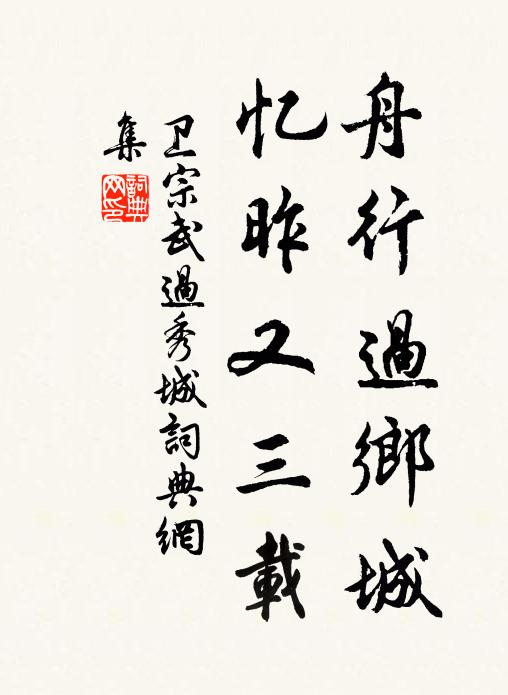 舟行過鄉城
忆昨又三載
卫宗武過秀城詞典網
集
詞典
网印